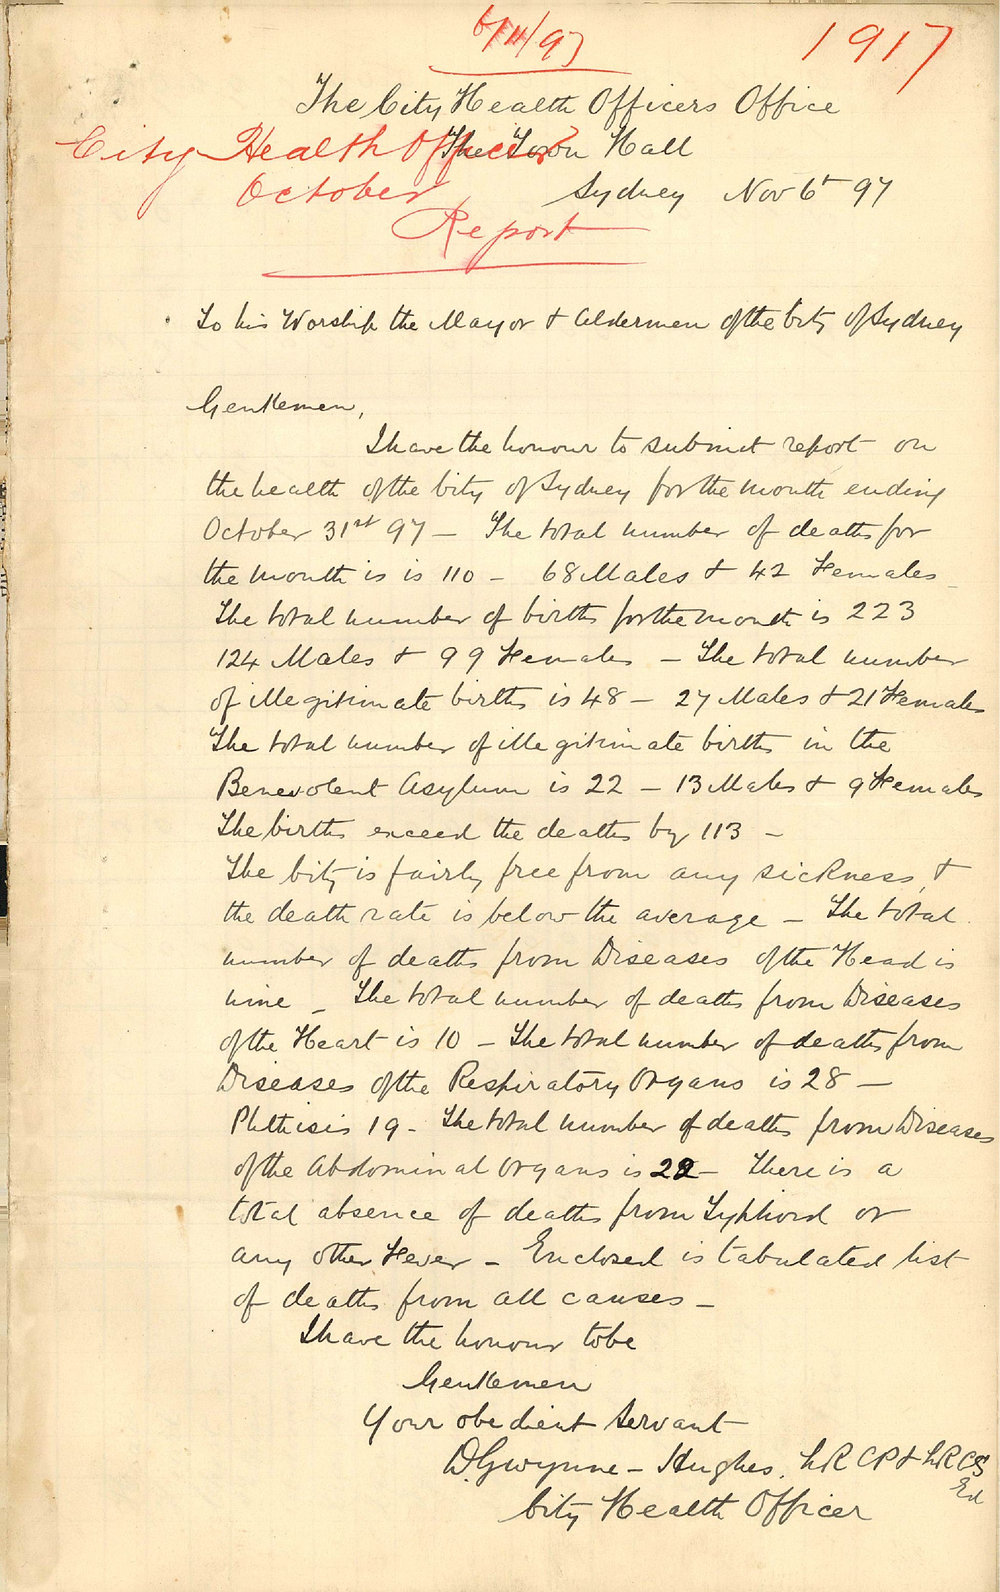 6/11/97
1917
The City Health Officers Office
City Health Officer
The Town Hall
October
Sydney Nov 6th 97
Report
To his Worship the Mayor & Aldermen of the City of Sydney
Gentlemen,
I have the honour to submit report on
the health of the City of Sydney for the month ending
October 31st 97 – The total number of deaths for
the month is is 110 – 68 Males & 42 Females –
The total number of births for the month is 223
124 Males & 99 Females – The total number
of illegitimate births is 48 – 27 Males & 21 Females
The total number of illegitimate births in the
Benevolent Asylum is 22 – 13 Males & 9 Females
The births exceed the deaths by 113 –
The City is fairly free from any sickness, &
the death rate is below the average – The total
number of deaths from Diseases of the Head is
nine – The total number of deaths from Diseases
of the Heart is 10 – The total number of deaths from
Diseases of the Respiratory Organs is 28 –
Phthisis 19 – The total number of deaths from Diseases
of the Abdominal Organs is 22 – There is a
total absence of deaths from Typhoid or
any other Fever – Enclosed is tabulated list
of deaths from all causes –
I have the honour to be
Gentlemen
Your obedient Servant
D. Gwynne – Hughes. LRCP & LRCS
Ed
City Health Officer